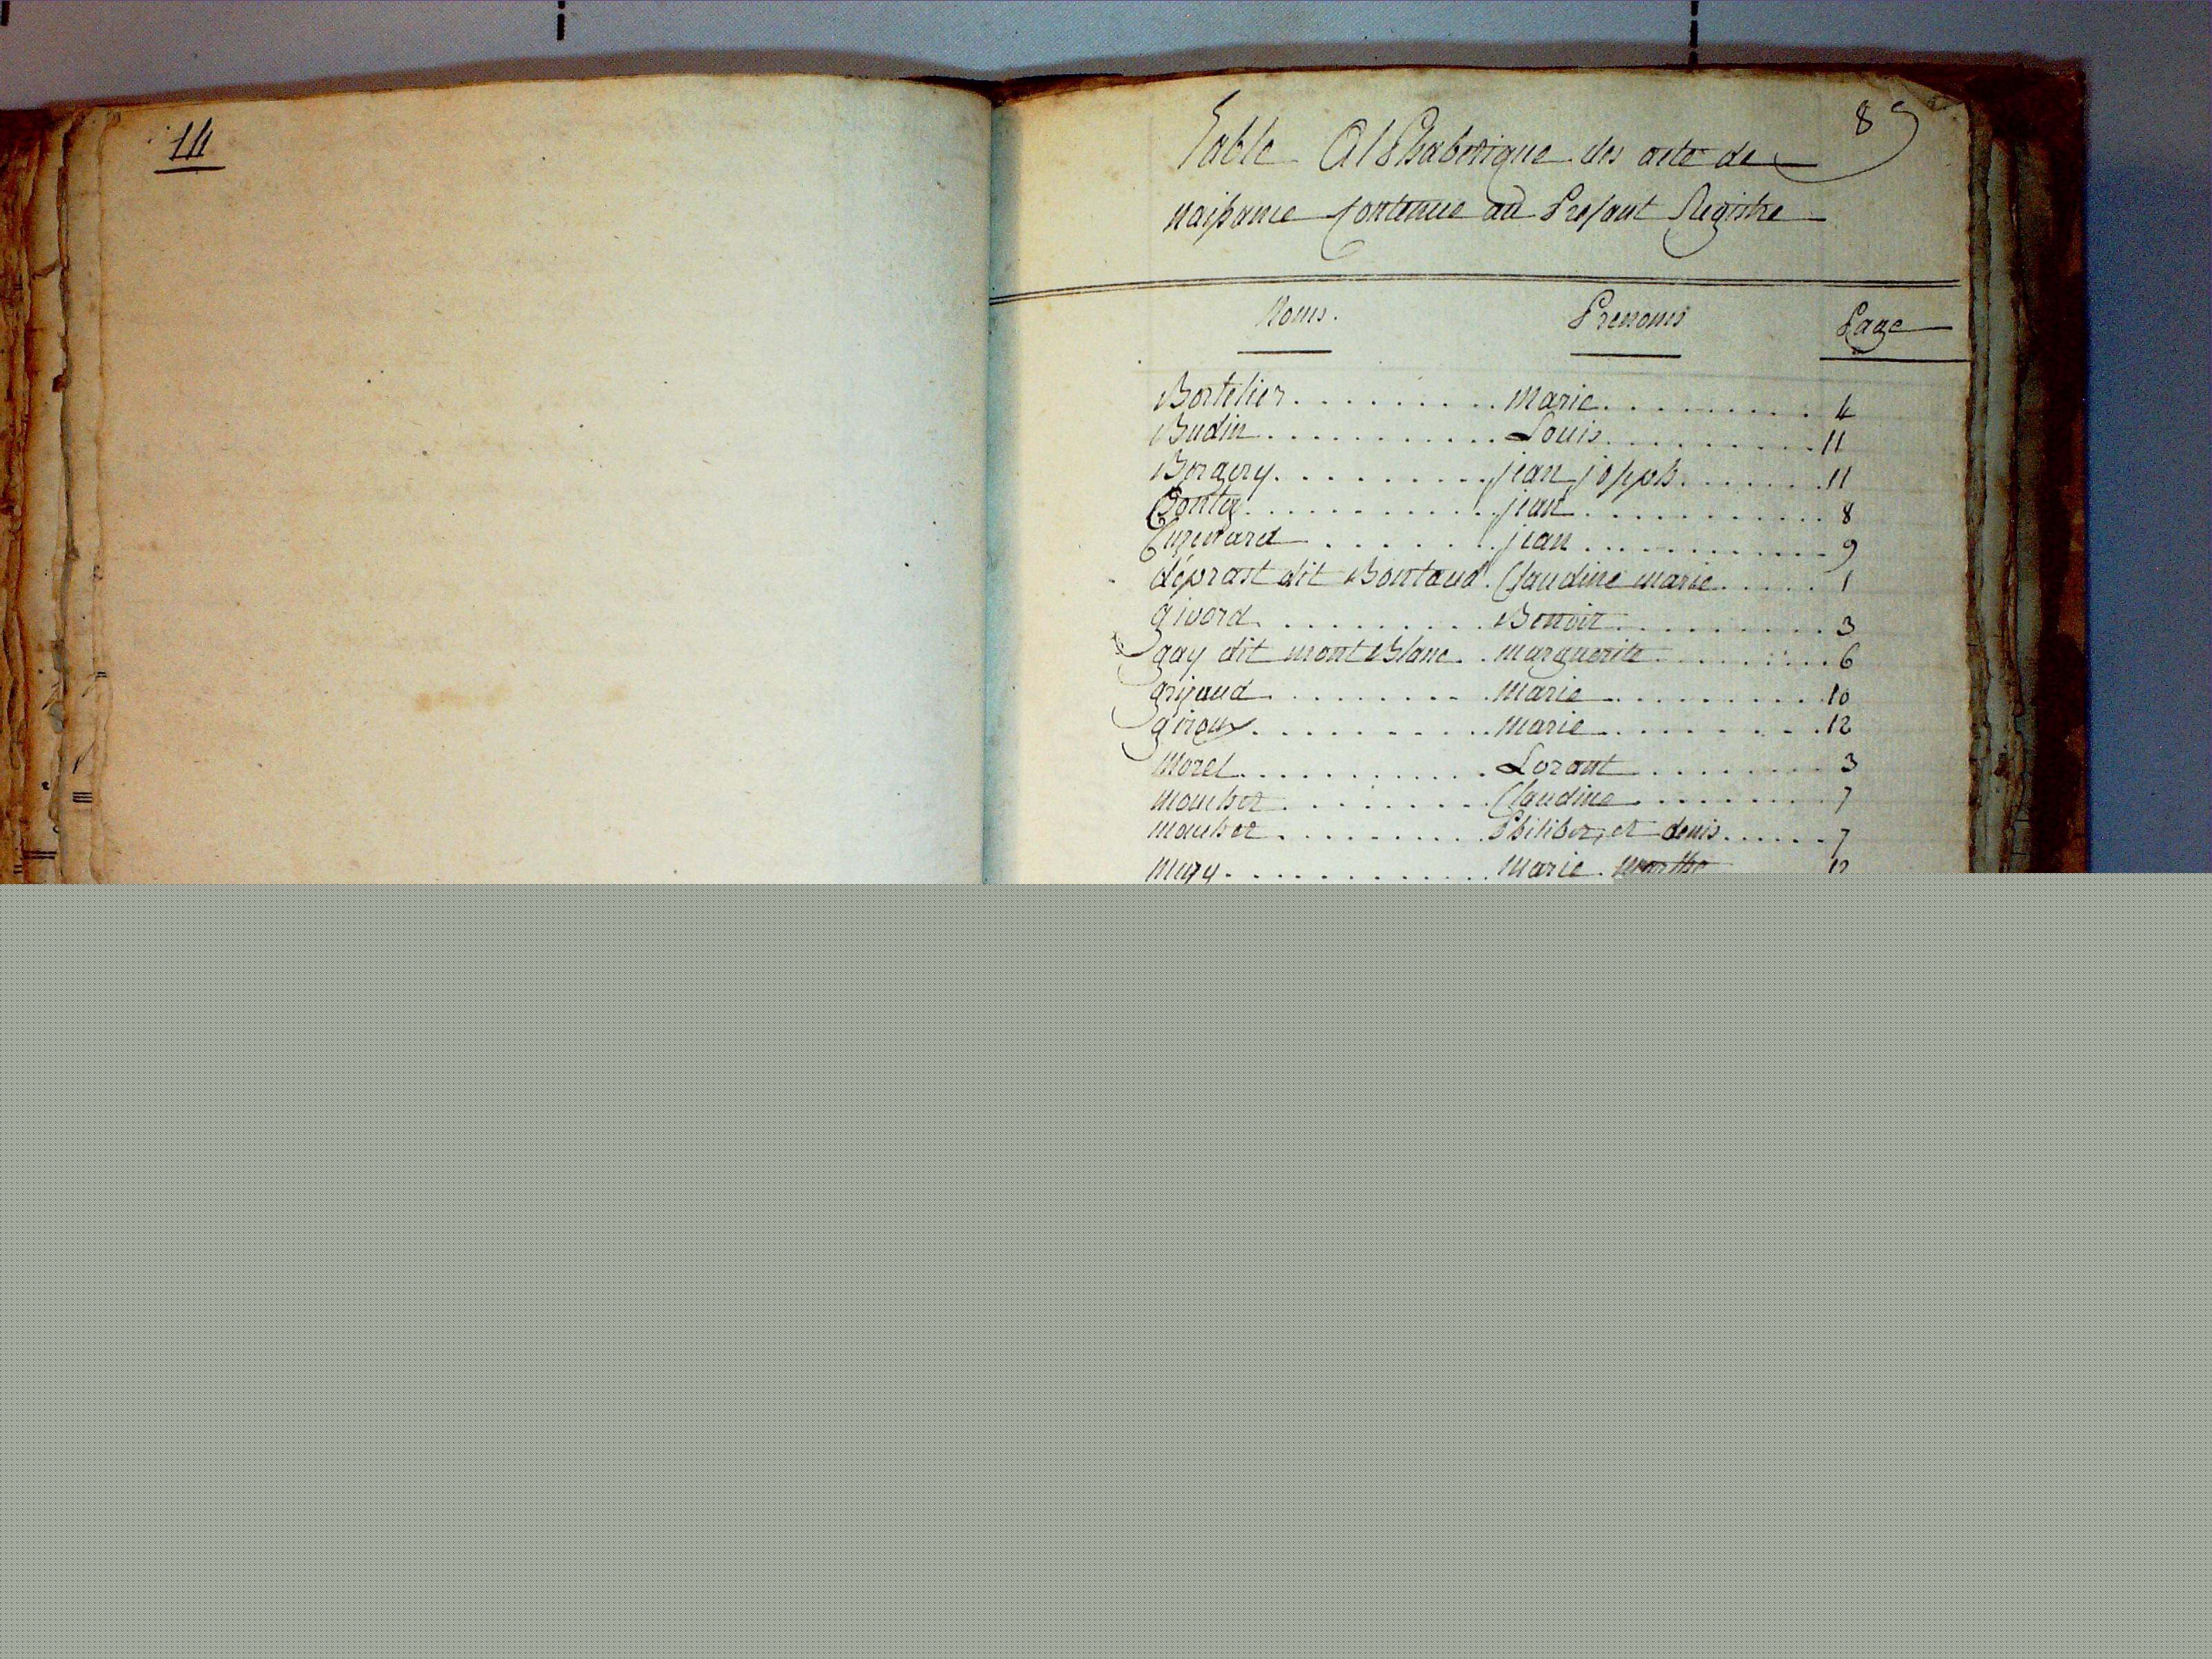 14
89
Table Alphabetique des acte de
naissance contenue au Present Registre
Noms. Prenoms Page
Bertelier Marie 4
Budin Louis 11
Bergery jean joseph 11
jean 8
Cuzenard jean 9
déprast dit Bontaud Claudine marie 1
givord Benoit 3
gay dit mont Blanc marguerite 6
grijaud Marie 10
giroux Marie 12
Morel Lorant 3
Moucher Claudine 7
Moucher Philiber, et denis 7
Mary Marie Marthe 12